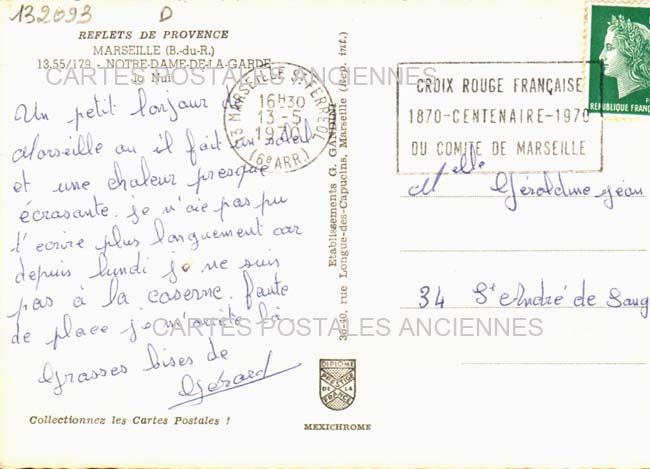 132093 D
REFLETS DE PROVENCE
MARSEILLE (B.-du-R.)
13.55/179 - NOTRE-DAME-DE-LA-GARDE
la Nuit
CARTES POSTALES ANCIENNES
Un petit bonjour de
Marseille au il fait un soleil
et une chaleur presque
écrasante. je n'aie pas pu
t'ecrire plus longuement car
depuis lundi je ne suis
pas à la caserne. faute
de place je m'arrête là
Grasses bises de
Gérard
Collectionnez les Cartes Postales !
13 MARSEILLE ST FERREOL
16H30
13-5
1970
(6e ARR.)
Etablissements G. GANDINI
36-40, rue Longue-des-Capucins, Marseille (Rep. int.)
CROIX ROUGE FRANÇAISE
1870-CENTENAIRE-1970
DU COMITE DE MARSEILLE
REPUBLIQUE FRANÇAISE
Melle Géraldine jean
34 St André de Sang
CARTES POSTALES ANCIENNES
DIPLOME
PRESTIGE
DE LA
FRANCE
MEXICHROME